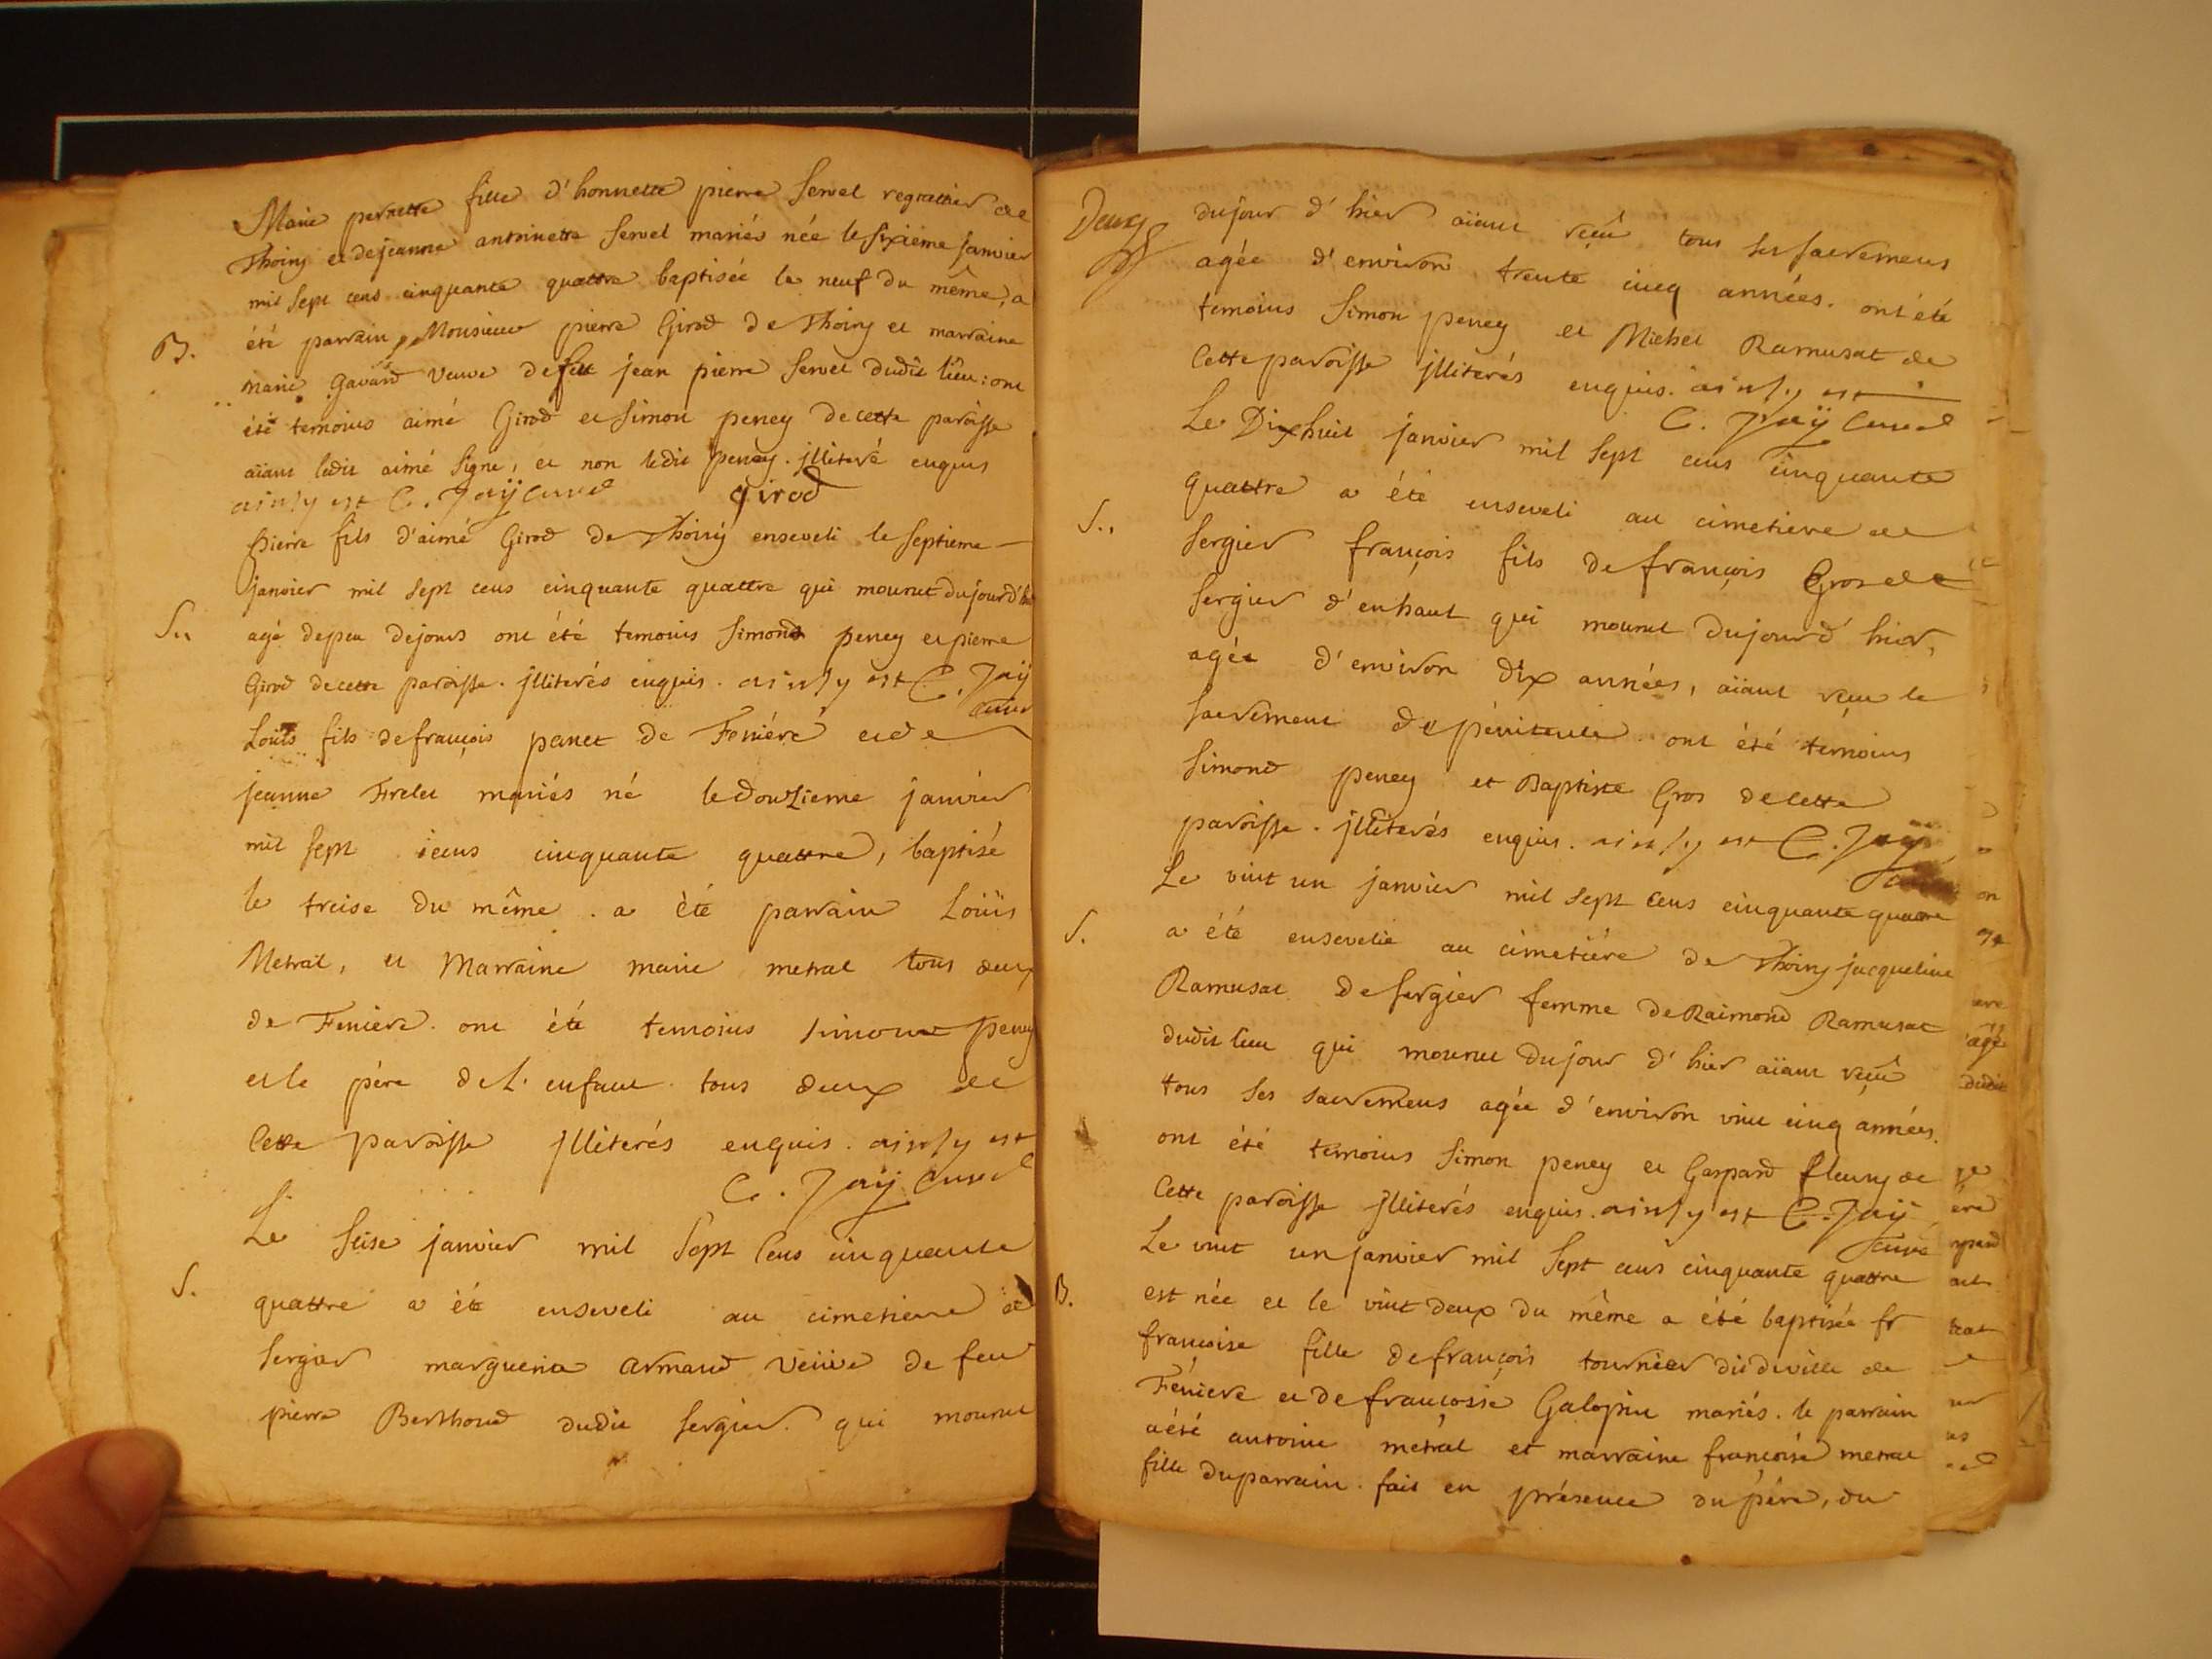 Marie pernette fille d'honnette pierre Servel regrattier de
Thoiry et de jeanne antoinette Servel mariés née le sixiéme janvier
mil sept cens cinquante quattre baptisée le neuf du même, a
B. été parrain Monsieur pierre Girod de Thoiry et marraine
marie Gavard veuve de feu jean pierre Servel dudit lieu: ont
été temoins aimé Girod et simon peney de cette paroisse
aïant ledit aimé signé, et non ledit peney. jlliteré enquis
ainsy est C. Jaÿ Curé Girod
pierre fils d'aimé Girod de Thoiry enseveli le septieme
janvier mil sept cens cinquante quattre qui mourut dujour d'hier
S.. agé de peu de jours ont été temoins Simond peney et pierre
Girod de cette paroisse. jlliterés enquis. ainsy est C. Jaÿ
Curé
Loüis fils de françois panet de Feniére et de
jeanne Frelet mariés né le douzieme janvier
mil sept cens cinquante quattre, baptisé
le treise du même. a été parrain Loüis
Metral, et Marraine marie metral tous deux
de Feniere. ont été temoins simond peney
et le père de l'enfant tous deux de
Cette paroisse jlliterés enquis. ainsy est
C. Jaÿ Curé
Le seise janvier mil sept cens cinquante
S. quattre a été enseveli au cimetiere de
Sergier marguerite armand veüve de feu
pierre Berthoud dudit Sergier qui mourut
Deux dujour d'hier aïant reçû tous ses sacremens
agée d'environ trente cinq années. ont été
temoins Simon peney et Michel Ramusat de
Cette paroisse jlliterés enquis. ainsy est
C. Jaÿ Curé
Le Dixhuit janvier mil sept cens cinquante
quattre a été enseveli au cimetiere de
S.. Sergier françois fils de françois Gros de
Sergier d'enhaut qui mourut dujourd'hier,
agée d'environ dix années, aïant reçu le
sacrement de pénitence. ont été témoins
Simond peney et Baptiste Gros de cette
paroisse. jlliterés enquis. ainsy est C. Jaÿ
Le vint un janvier mil sept cens cinquante quattre
S. a été ensevelie au cimetiére de Thoiry jacqueline
Ramusat de Sergier femme de Raimond Ramusat
dudit lieu qui mourut dujour d'hier aïant reçû
tous ses sacremens agée d'environ vint cinq années.
ont été temoins Simon peney et Gaspard fleury de
Cette paroisse jlliterés enquis. ainsy est C. Jaÿ
Curé
Le vint un janvier mil sept cens cinquante quattre
B. est née et le vint deux du même a été baptisée fr
françoise fille de françois tournier dit deville de
Feniere et de françoise Galopin mariés. le parrain
a été antoine metral et marraine françoise metral
fille du parrain. fait en présence du pére, du